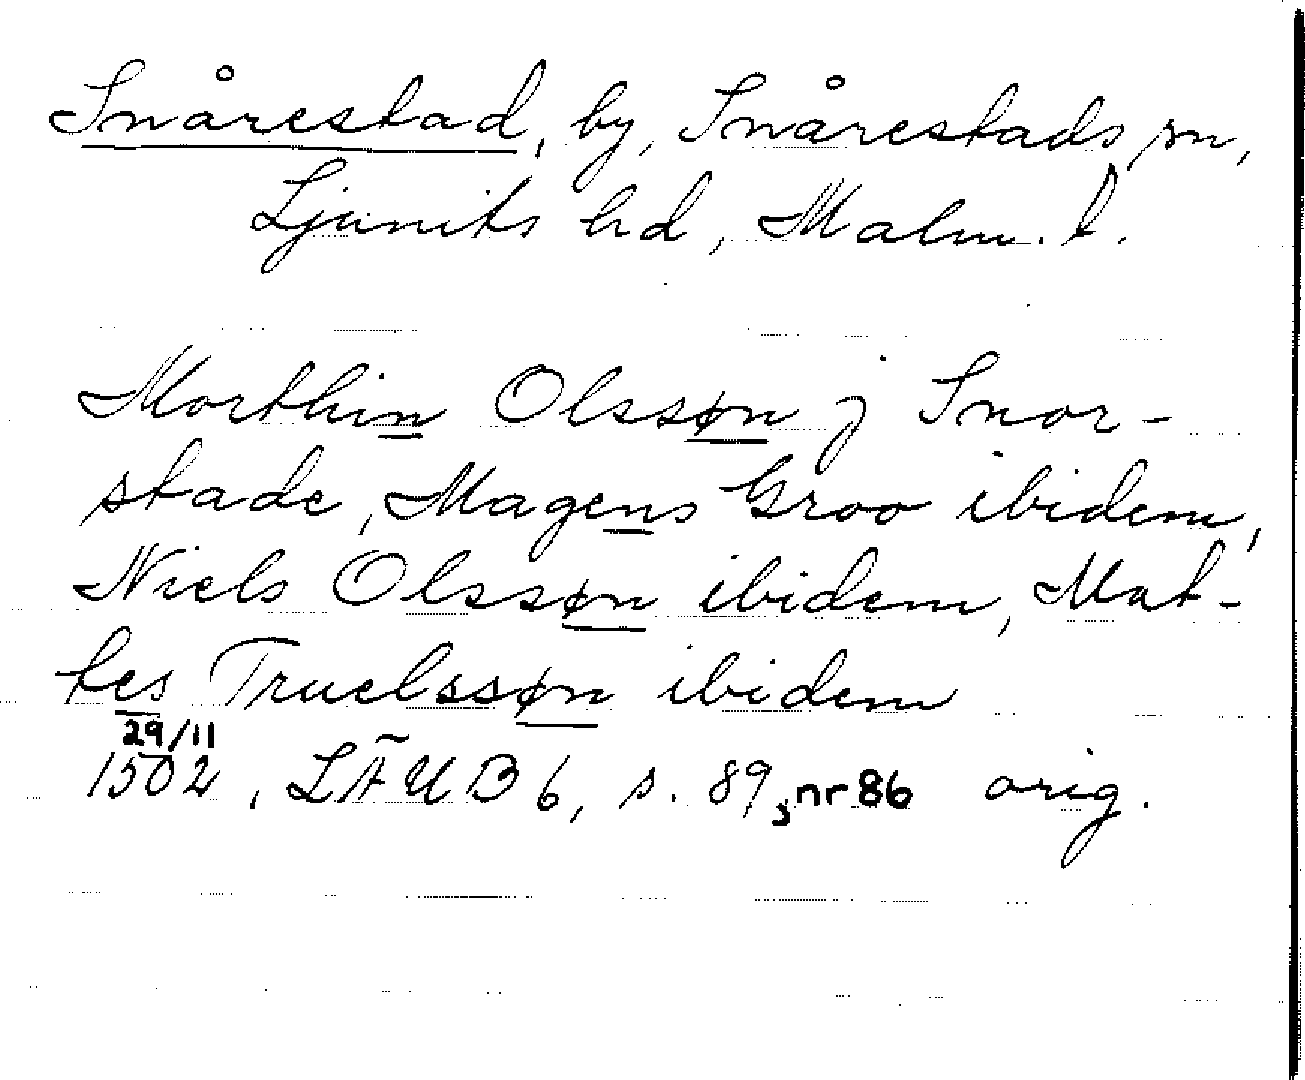 Snårestad, by, Snårestads sn,
Ljunits hd, Malm. l.
Morthin Olssøn j Snor-
stade, Magens Groo ibidem,
Niels Olssøn ibidem, Mat-
tes Truelssøn ibidem
29/11
1502, LÃUB 6, s. 89, nr 86 orig.